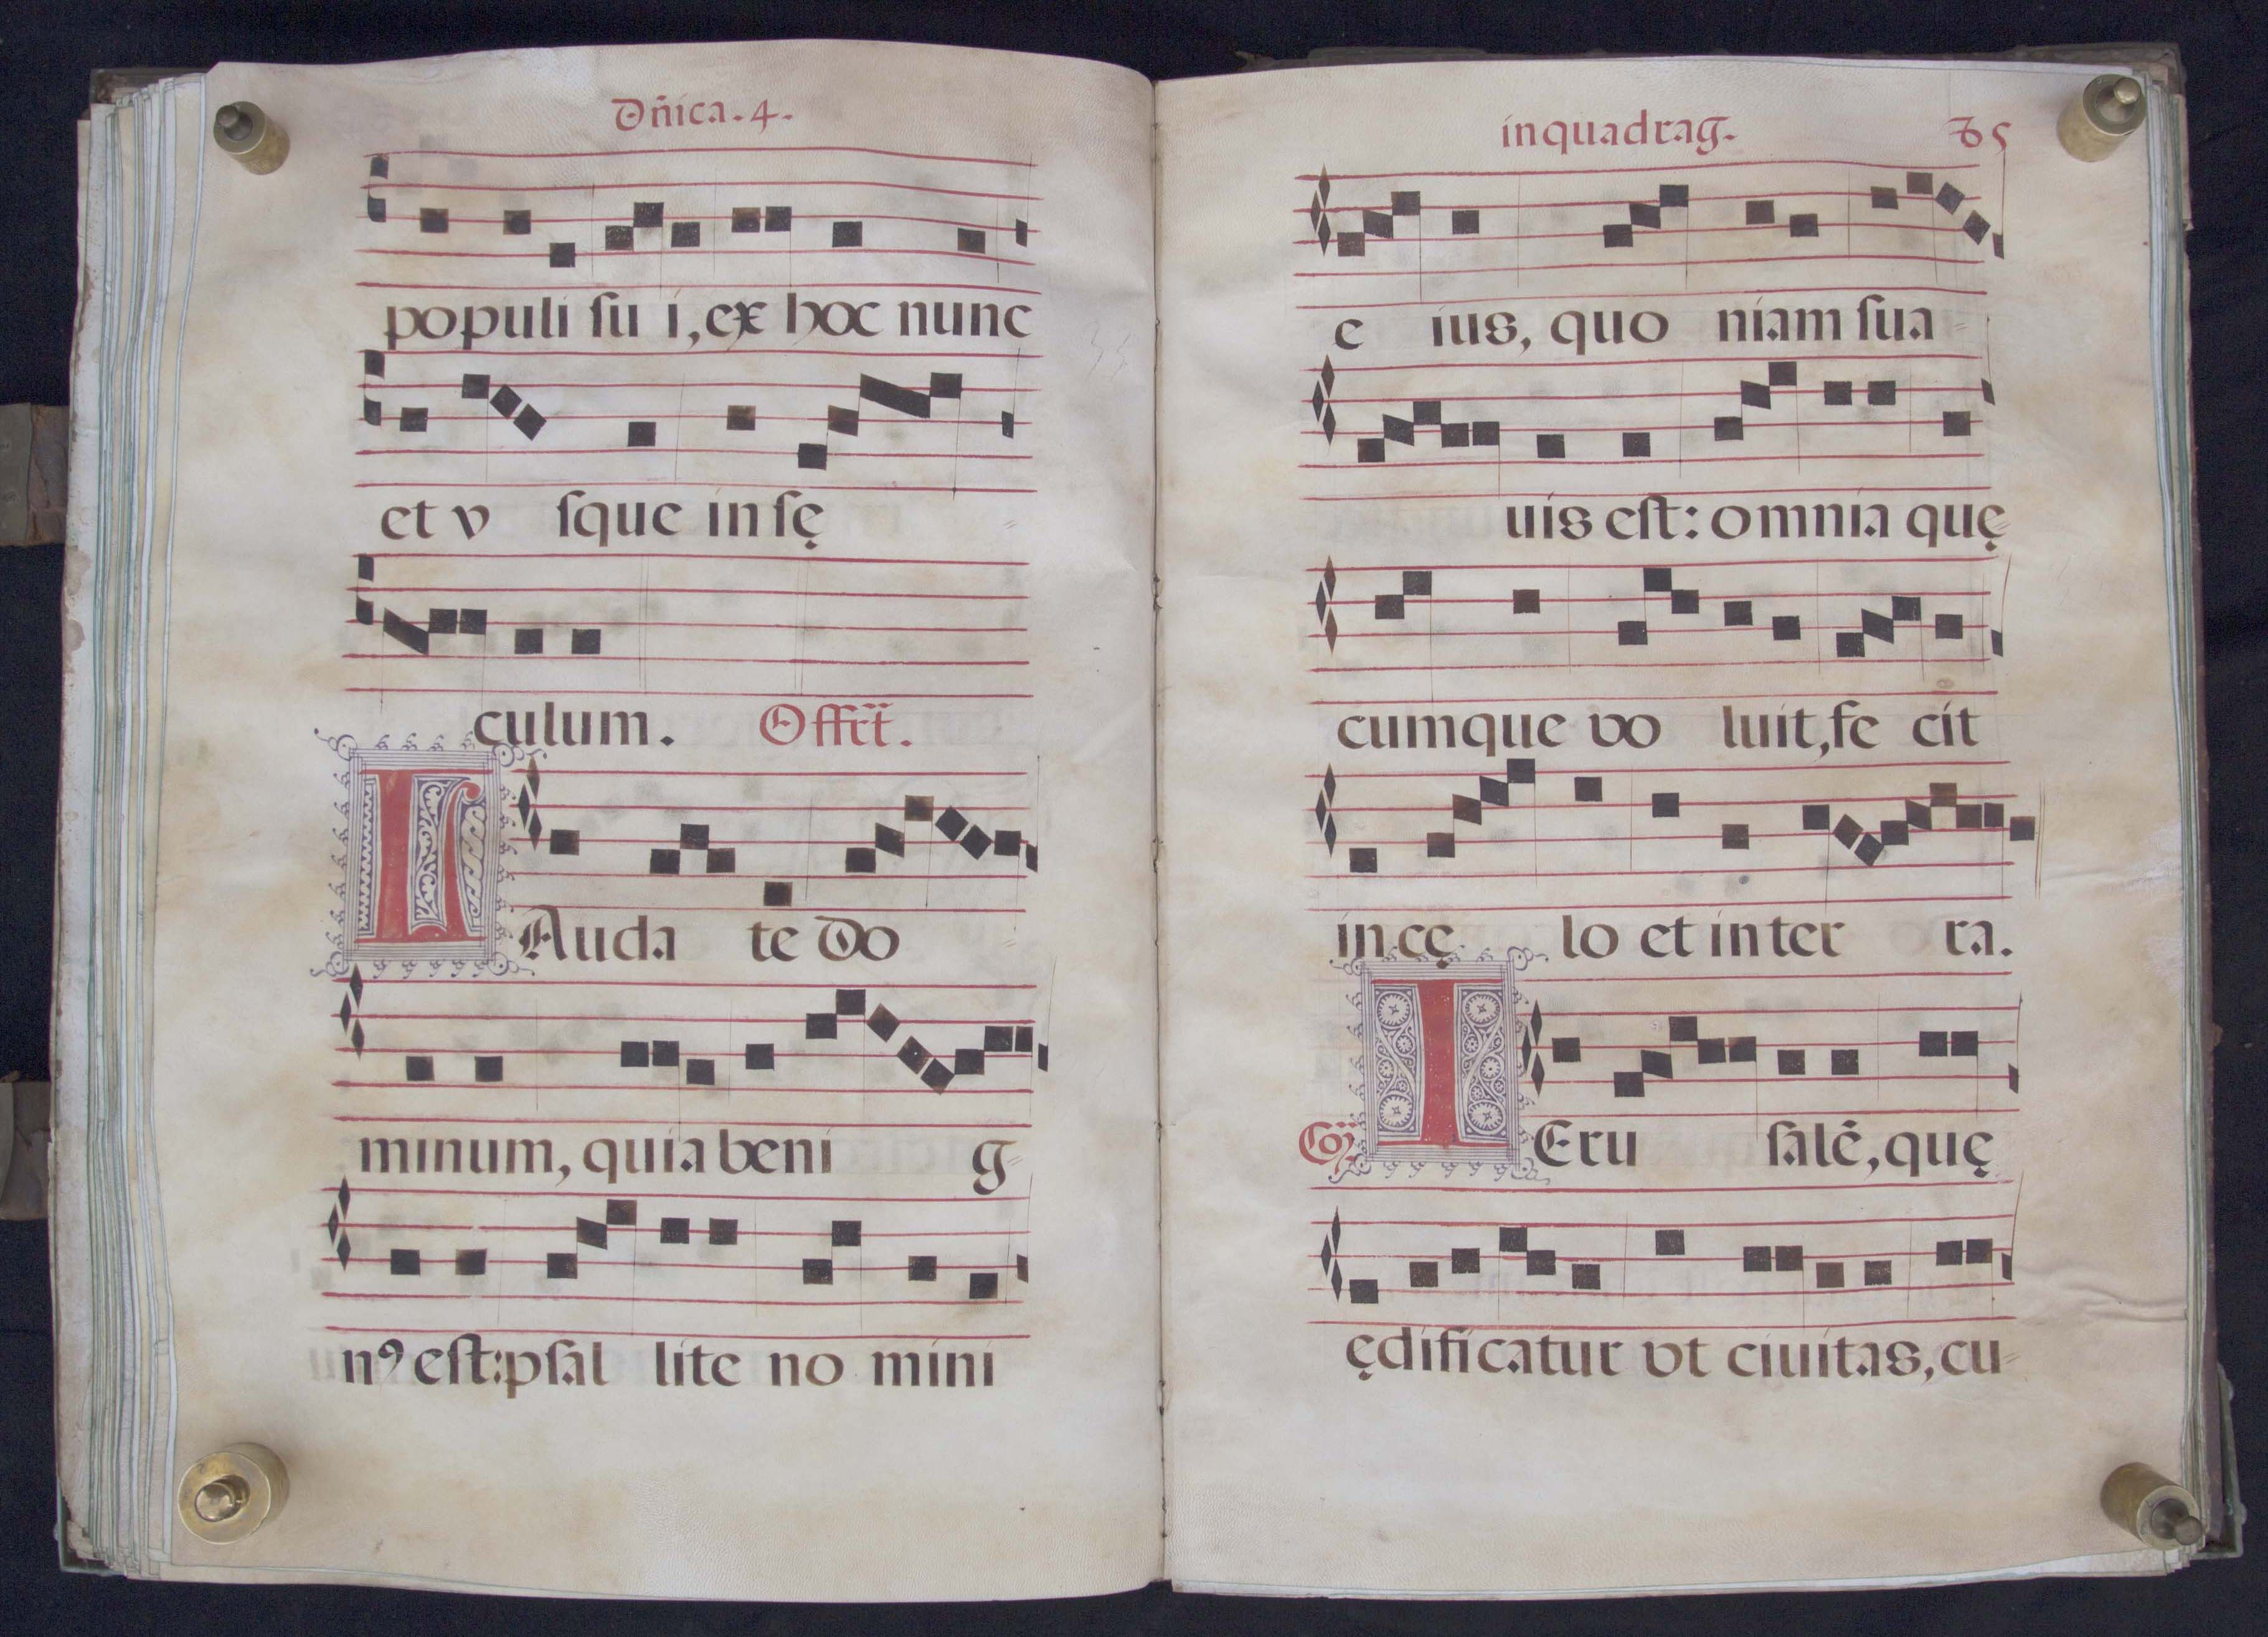 Dñica. 4.
populi ſu i, ex hoc nunc
et v ſque in ſę
culum. Offrt̄.
LAuda te Do
minum, quia beni g
nꝰ eſt: pſal lite no mini
in quadrag.
e ius, quo niam ſua
uis eſt: omnia quę
cumque vo luit, fe cit
in cę lo et in ter ra.
IEru ſalē, quę
ędificatur vt ciuitas, cu